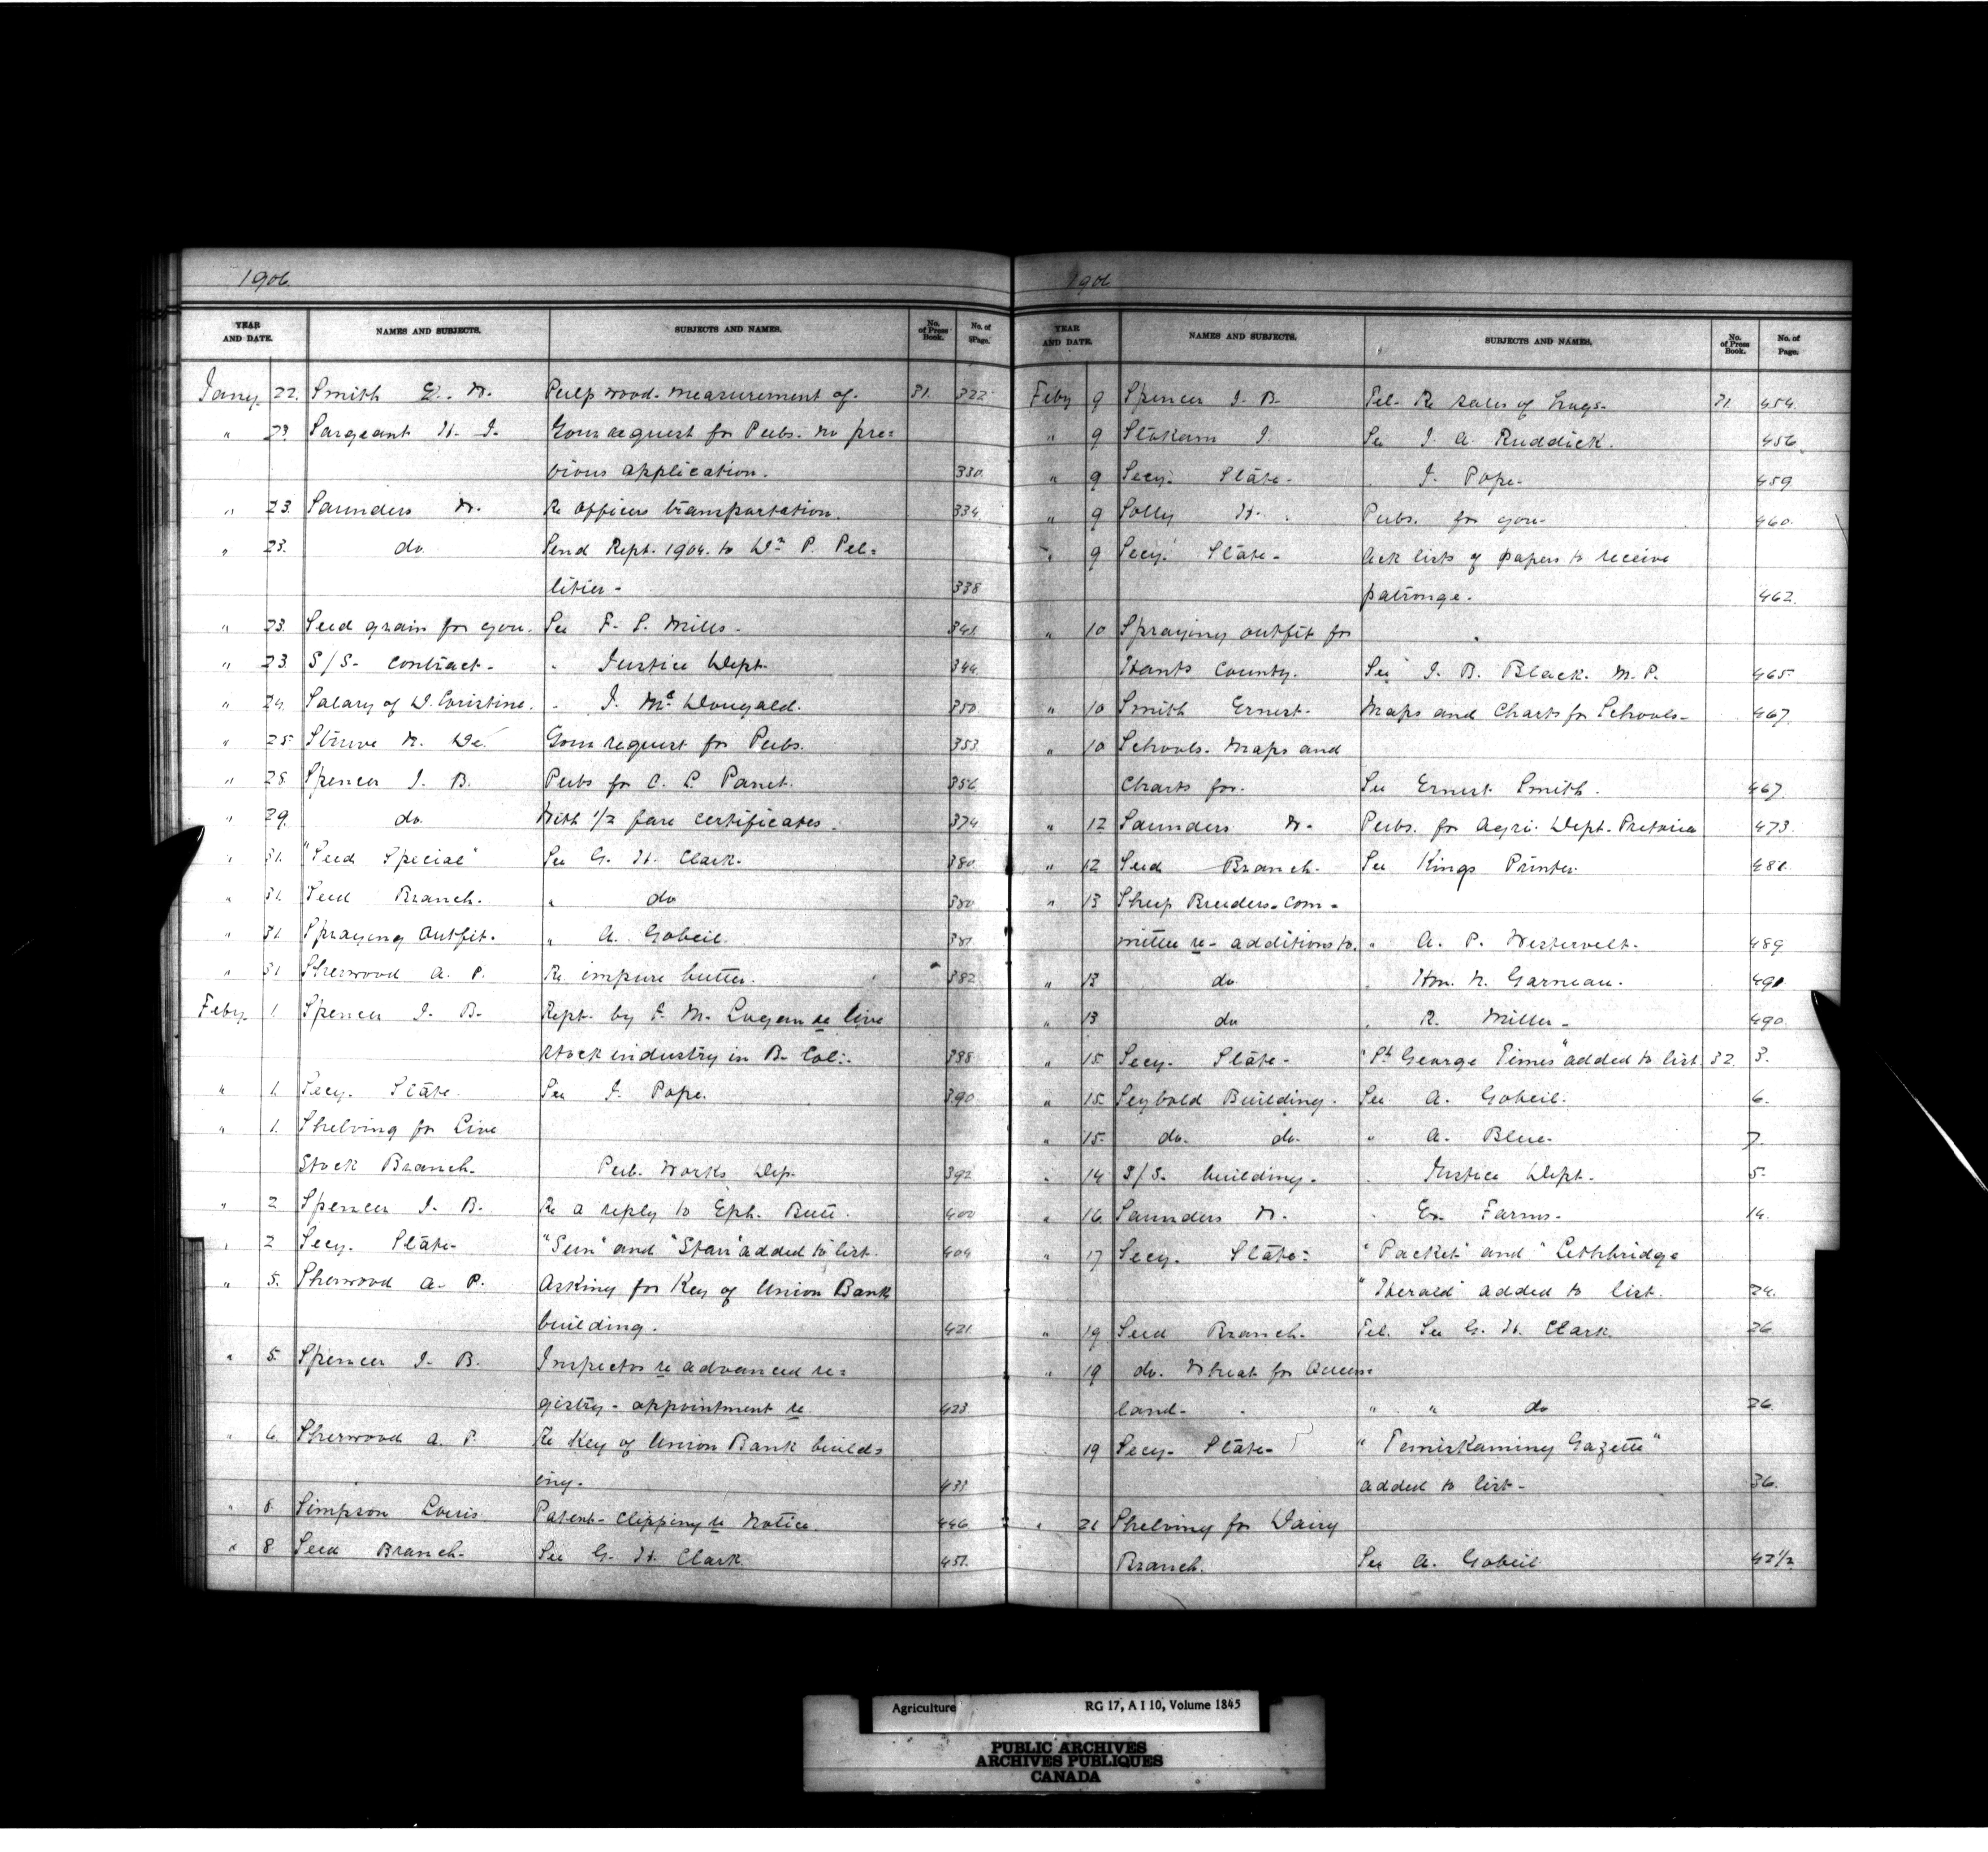 1906.
YEAR AND DATE. NAMES AND SUBJECTS. SUBJECTS AND NAMES. No. of Press Book. No. of Page.
Jany. 22. Smith E. W. Pulp wood. Measurement of. 31. 322
" 23. Sargeant H. J. Your request for Pubs. no pre=
vious application. 330.
" 23. Saunders W. Re officers transportation. 334.
" 23. do. Send Rept. 1904. to Wm P. Pel=
litier - 338
" 23. Seed grain for you. See F. S. Mills - 341.
" 23. S/S - Contract - " Justice Dept. 344.
" 24. Salary of D. Christine. " J. McDougald. 350.
" 25 Struve W. De. Your request for Pubs. 353
" 28. Spencer J. B. Pubs for C. L. Panet. 356
" 29. do. With 1/2 fare certificates. 374
" 31. "Seed Special" See G. H. Clark. 380.
" 31. Seed Branch. " do 380
" 31. Spraying Outfit. " A. Gobeil. 381
" 31 Sherwood A. P. Re. impure butter. 382
Feby. 1. Spencer J. B. Rept. by F. M. Logan re live
stock industry in B. Col:. 388
" 1. Secy. State. See J. Pope. 390
" 1. Shelving for Live
Stock Branch. Pub. Works Dep. 392
" 2 Spencer J. B. Re a reply to Eph. Butt. 400
" 2 Secy. State - "Sun" and "Star" added to list. 404
" 5. Sherwood A. P. Asking for Key of Union Bank
building. 421
" 5. Spencer J. B. Inspector re advanced re=
gistry - appointment re. 423
" 6. Sherwood A. P. Re Key of Union Bank build=
ing. 433
" 8. Simpson Louis Patent - Clipping re Notice. 446
" 8. Seed Branch. See G. H. Clark 451.
1906
YEAR AND DATE. NAMES AND SUBJECTS. SUBJECTS AND NAMES. No. of Press Book. No. of Page.
Feby 9 Spencer J. B. Tel. Re sales of hogs. 31. 454.
" 9 Stokam J. See J. A. Ruddick. 456.
" 9 Secy. State - " J. Pope - 459
" 9 Solly H. Pubs. for you - 460.
" 9 Secy. State - Ack lists of papers to receive
patronge. 462.
" 10 Spraying outfit for
Hants County. See J. B. Black. M. P. 465.
" 10 Smith Ernest. Maps and Charts for Schools - 467.
" 10 Schools. Maps and
Charts for. See Ernest Smith. 467.
" 12 Saunders W. Pubs. for Agri. Dept. Pretoria 473.
" 12 Seed Branch. See Kings Printer. 481.
" 13 Sheep Breeders. Com =
mittee re - additions to. " A. P. Westervelt. 489
" 13 do " Hon. N. Garneau. 491.
" 13 do " R. Miller - 490.
" 15. Secy. State - "St. George Times" added to list. 32. 3.
" 15. Seybold Building. See A. Gobeil. 6.
" 15. do. do. " A. Blue. 7.
" 14 S/S. building. " Justice Dept. 5.
" 16 Saunders W. " Ex. Farms - 14.
" 17 Secy. State: "Packet" and "Lethbridge
"Herald" added to list. 24.
" 19 Seed Branch. Tel. See G. H. Clark. 26
" 19 do. Wheat for Queens=
land - " " do 26.
19 Secy. State - "Temiskaming Gazette"
added to list - 36.
" 21 Shelving for Dairy
Branch. See A. Gobeil 42 1/2
Agriculture RG 17, A I 10, Volume 1845
PUBLIC ARCHIVES
ARCHIVES PUBLIQUES
CANADA